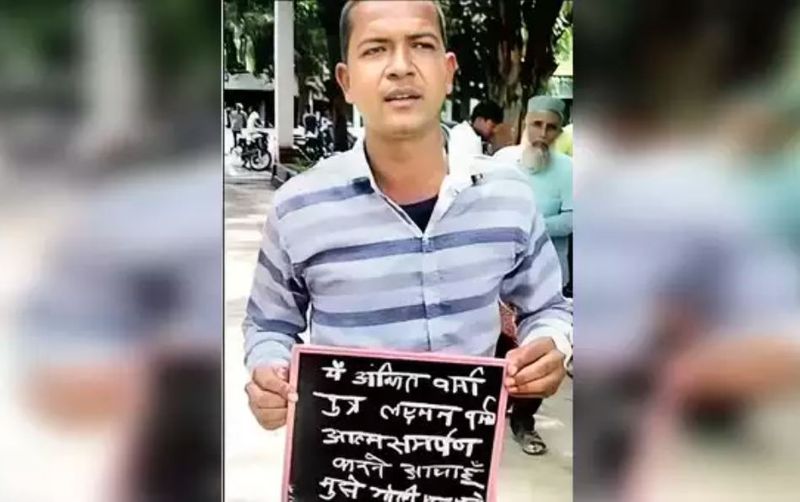 मैं अंकित वर्मा
पुत्र लक्ष्मन वर्मा
आत्मसमर्पण
करने आया हूँ
मुझे गोली